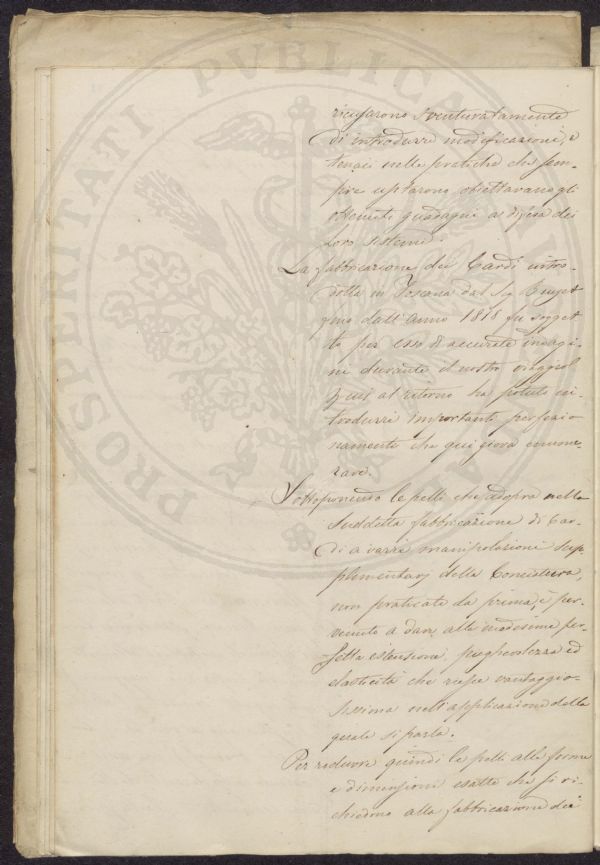 PROSPERITATI PUBLICAE
ricusarono sventuratamente
di introdurre modificazioni, e
tenaci nelle pratiche che sem-
pre usarono obiettavano gli
ottenuti guadagni a difesa dei
loro sistemi.
La fabbricazione dei Cardi intro-
dotta in Toscana dal Sig
fino dall'Anno 1818 fu sogget
to per esso di accurate indagi-
ni durante il nostro viaggio
al ritorno ha potuto in-
trodurre importanti perfezio
namenti che qui giova enume-
rare.
Sottoponendo le pelli che adopra nella
suddetta fabbricazione di Car-
di a varie manipolazioni sup-
plimentarj della Conciatura,
non praticate da prima, è per-
venuto a dare alle medesime per-
fetta estensione, pieghevolezza ed
elasticità che riesce vantaggio-
sissima nell'applicazione della
quale si parla.
Per ridurre quindi le pelli alle forme
e dimensioni esatte che si ri-
chiedono alla fabbricazione dei